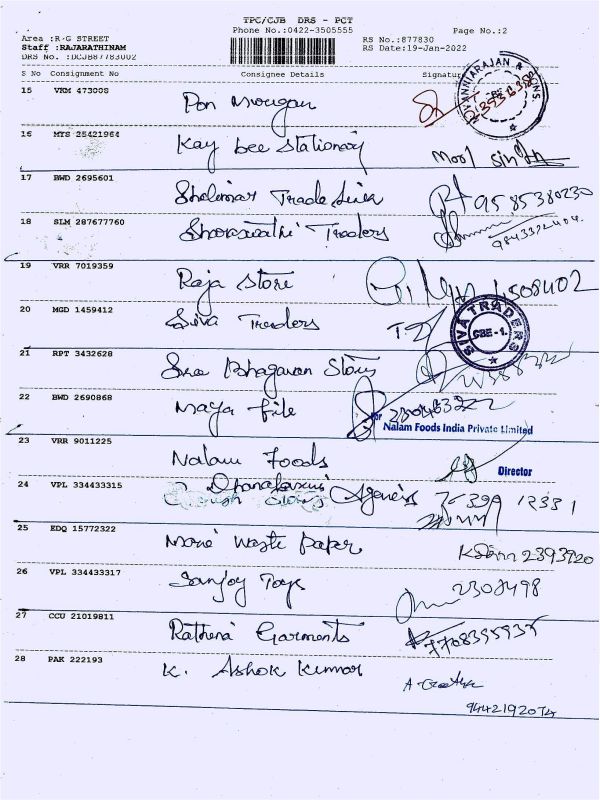 TPC/CJB DRS - PCT
Phone No.:0422-3505555
Page No.:2
Area :R-G STREET
Staff :RAJARATHINAM
DRS No. :DCJB87783002
RS No.:877830
RS Date:19-Jan-2022
S No Consignment No Consignee Details Signature
15 VKM 473008 Pon Murugan
VANNIARAJAN & SONS
16 MTS 25421964 Kay Bee Stationary Mool Singh
17 BWD 2695601 Shalimar Trade Link 9585380230
18 SLM 287677760 Traders 9843322404.
19 VRR 7019359 Raja Store
20 MGD 1459412 Siva Traders
SIVA TRADERS
CBE-1.
21 RPT 3432628 Sree Bhagavan Stores
22 BWD 2690868 Maya File
For Nalam Foods India Private Limited
23 VRR 9011225 Nalam Foods Director
24 VPL 334433315 Agencies
25 EDQ 15772322 Waste Paper 2393920
26 VPL 334433317 Sanjoy Toys 2308498
27 CCU 21019811 Rathena Garments
28 PAK 222193 K. Ashok Kumar
9442192074